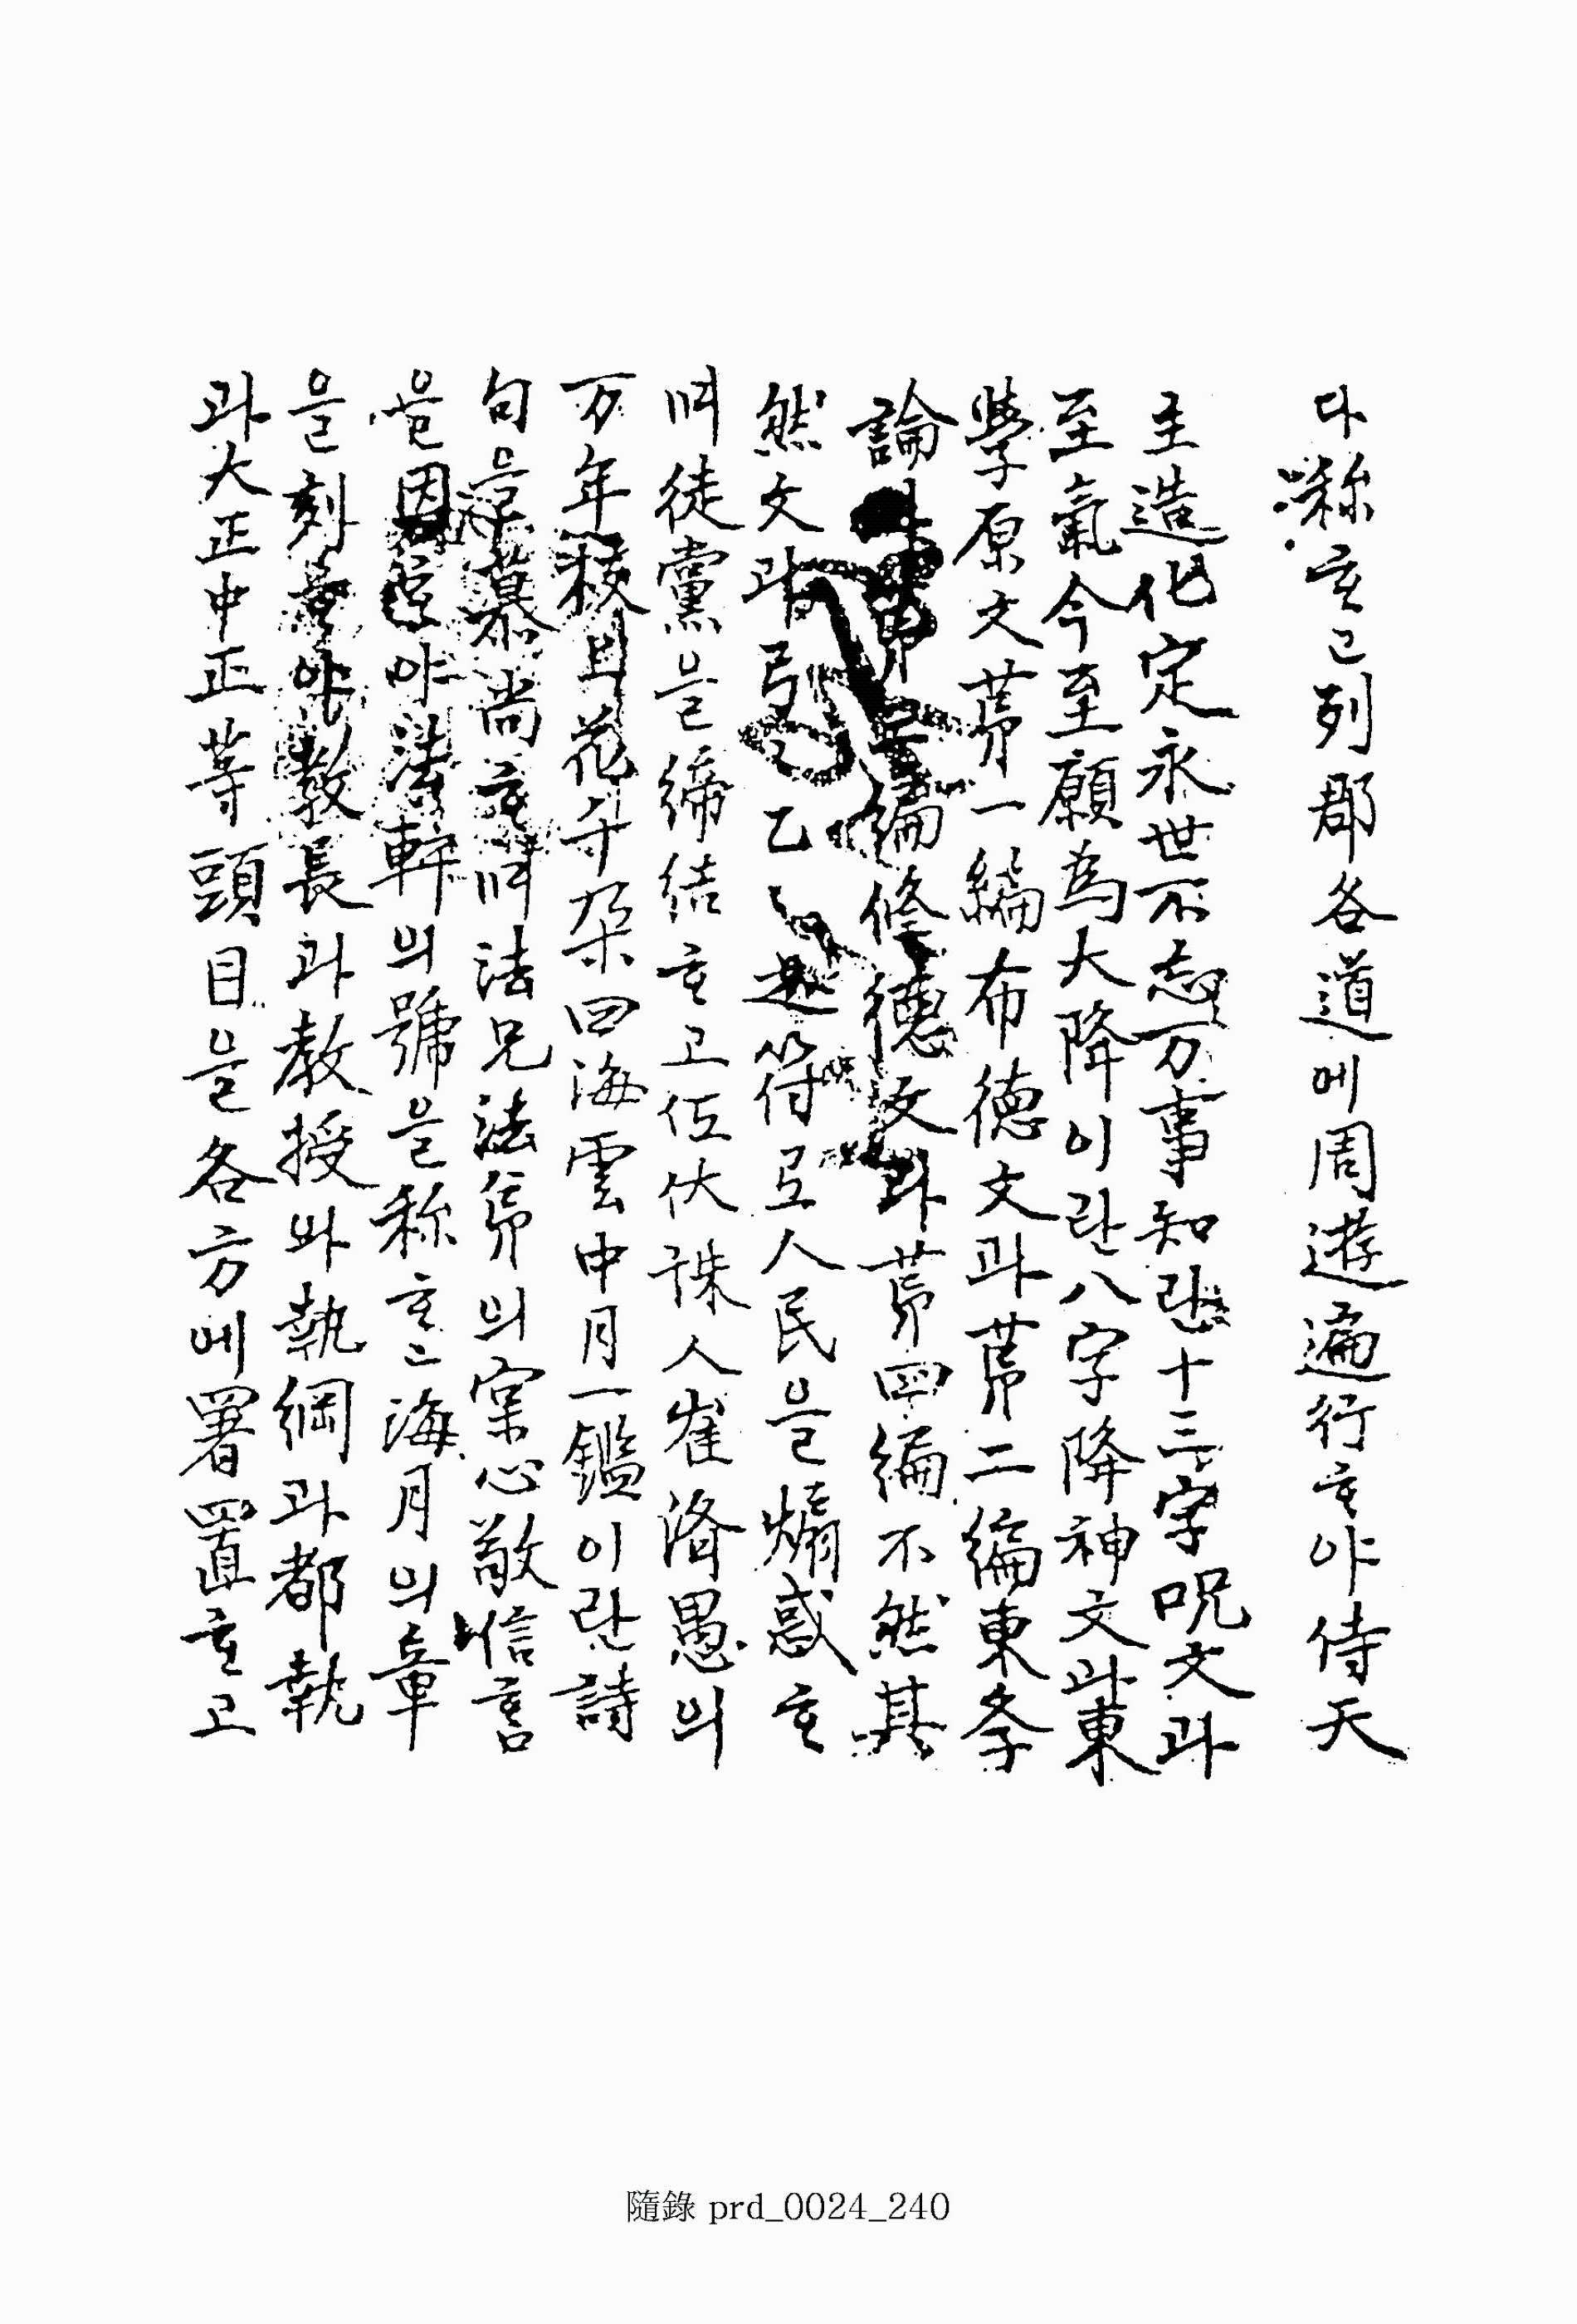 다 称ᄒᆞ고 列郡各道에 周遊遍行ᄒᆞ야 侍天
主造化定永世不忘万事知란 十三字呪文과
至氣今至願為大降이란 八字降神文과 東
學原文第一編布德文과 第二編東學
論 第三編修德文과 第四編不然其
然文과 弓弓乙乙 符로 人民을 煽惑ᄒᆞ
며 徒黨을 締結ᄒᆞ고 伏誅人崔済愚의
万年枝上花千朶四海雲中月一鑑이란 詩
句을 慕尚ᄒᆞ며 法兄法弟의 心敬信言
을 因ᄒᆞ야 法軒의 號을 称ᄒᆞ고 海月의 章
을 刻ᄒᆞ야 教長과 教授와 執綱과 都執
과 大正中正等頭目을 各方에 署置ᄒᆞ고
隨錄 prd_0024_240